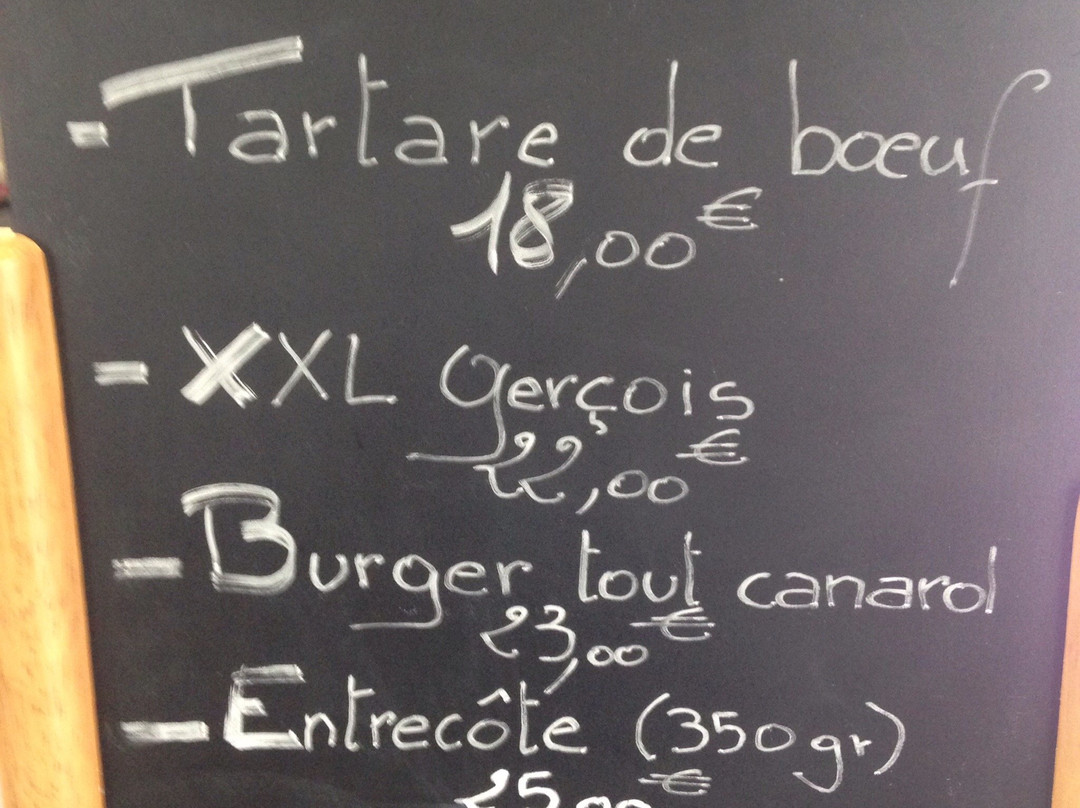 - Tartare de bœuf
18,00 €
- XXL Gerçois
22,00 €
- Burger tout canard
23,00 €
- Entrecôte (350 gr)
25,00 €